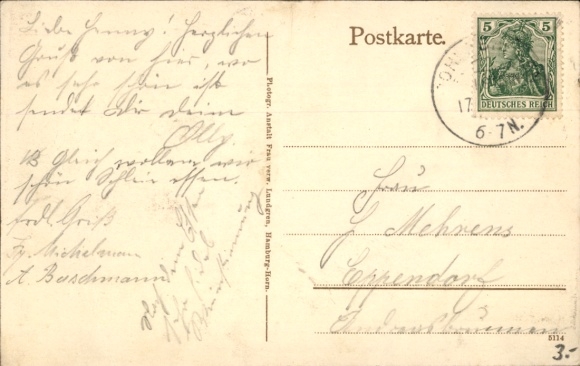 Liebe Henny! Herzlichen
Gruß von hier, wo
es sehr schön ist
sendet Dir Deine
Olly.
NB Gleich wollen wir
schön Schlei essen.
frdl. Gruß
Fr. Michelmann
A. Buschmann
Photogr. Anstalt Frau verw. Lundgren, Hamburg-Horn.
Postkarte.
5 5
DEUTSCHES REICH
17
6-7N.
Frau
H. Mehrens
Eppendorf
Andreasbrunnen
3
5114
3.-